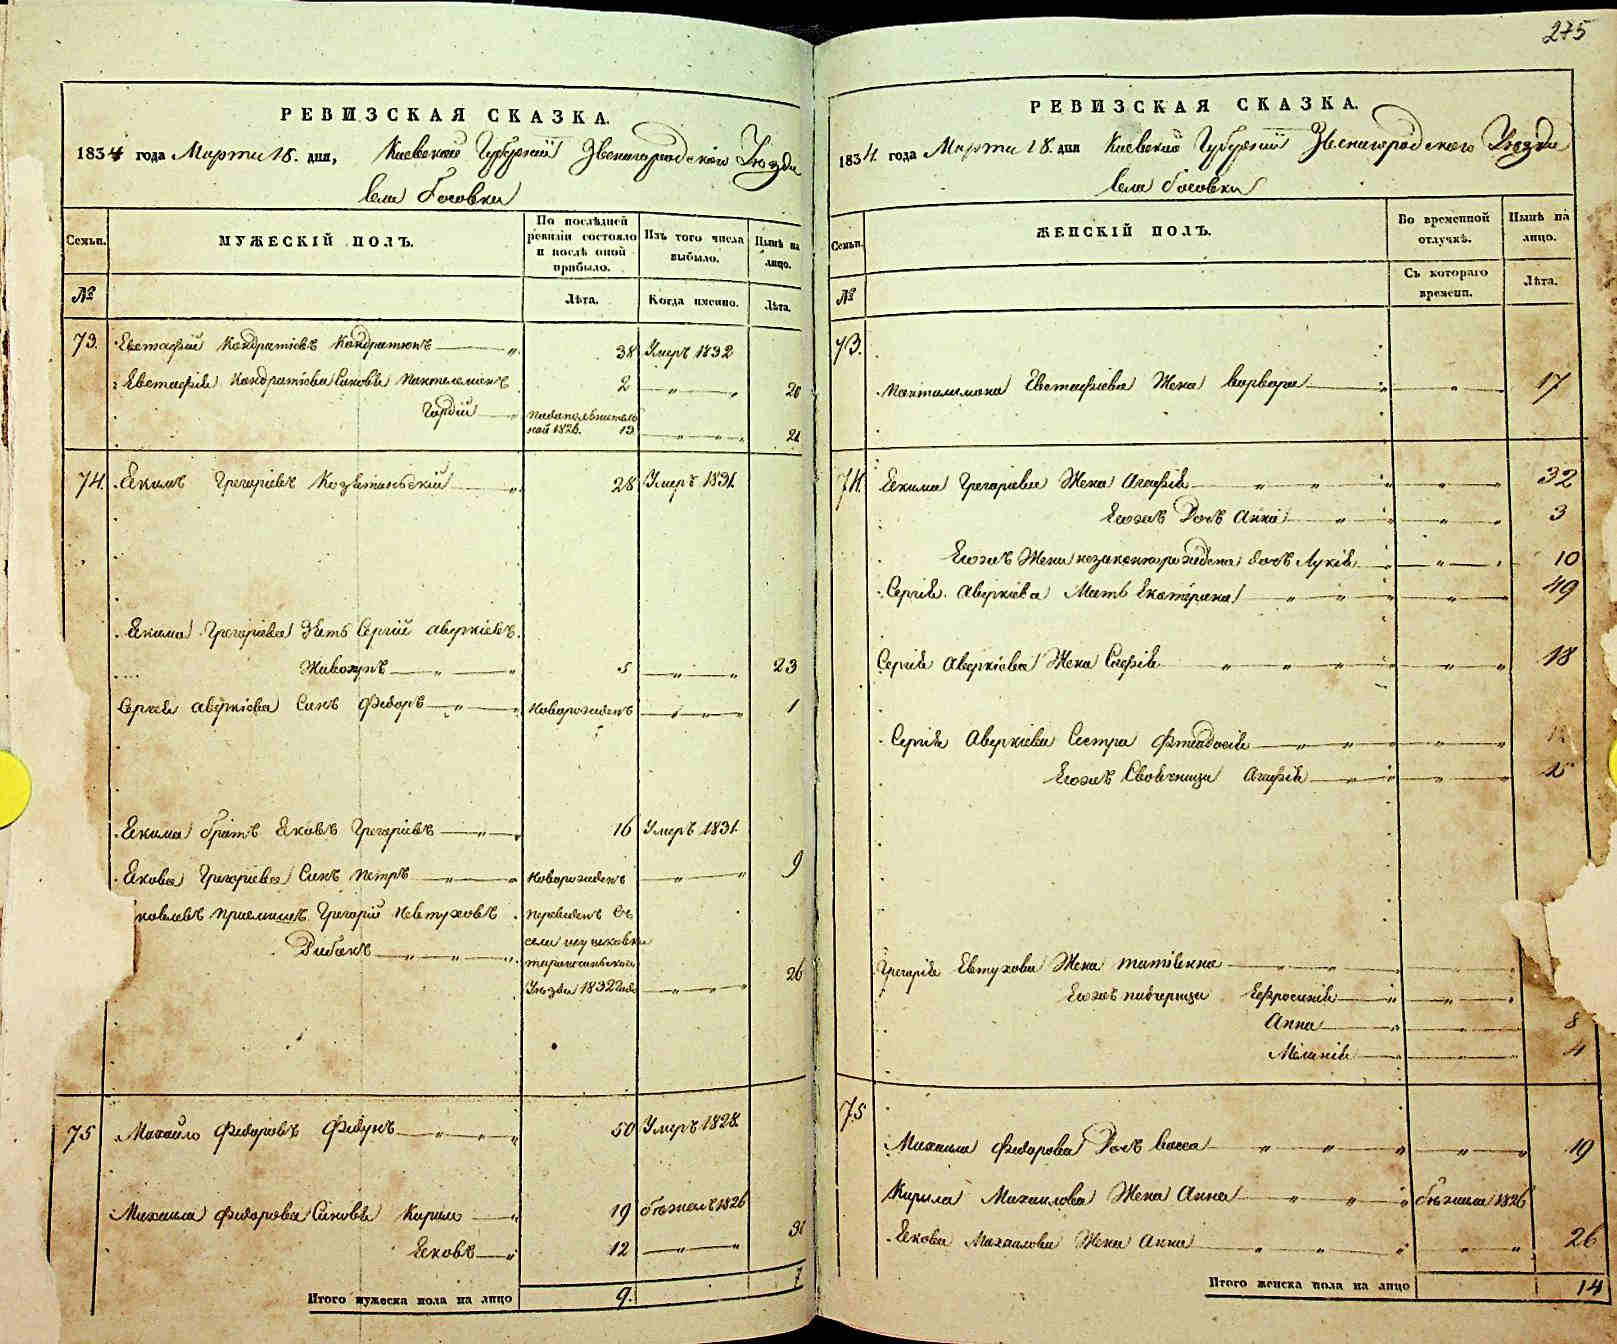 275
РЕВИЗСКАЯ СКАЗКА.
1834 года Марта 18. дня, Киевской Губернии Звенигородского Уезда
Села Босовки
Семьи. МУЖЕСКІЙ ПОЛЪ. По послѣдней ревизіи состояло и послѣ оной прибыло. Изъ того числа выбыло. Нынѣ на лицо.
№ Лѣта. Когда именно. Лѣта.
73. Евстафий Кондратіевъ Кондратюкъ 38 Умеръ 1832
Евстафія Кондратіева Сыновья Пантелемонъ 2 20
Гордій 13 21
ной 1826.
74. Екимъ Григоріевъ 28 Умеръ 1831.
Екима Григоріева Зять Сергій Аверкіевъ
5 23
Сергія Аверкіева Синъ Федоръ новорожденъ 1
Екима братъ Яковъ Григоріевъ 16 Умеръ 1831.
Якова Григоріева Синъ Петръ новорожденъ 9
Григорій Рибакъ переведенъ съ
села
Уезда 1832 года 26
75 Михайло Федоровъ Федунъ 50 Умеръ 1828.
Михаила Федорова Сыновья Кирило 19 бежалъ 1826
Яковъ 12 31
Итого мужеска пола на лицо 9. 7
РЕВИЗСКАЯ СКАЗКА.
1834. года Марта 18. дня Киевской Губернии Звенигородского Уезда
Села Босовки
Семьи. ЖЕНСКІЙ ПОЛЪ. Во временной отлучкѣ. Нынѣ на лицо.
№ Съ котораго времени. Лѣта.
73.
Пантелемона Евстафіева Жена Варвара 17
74. Екима Григоріева Жена Агафія 32
Егожъ Дочь Анна 3
Егожъ Жены незаконнорожденна дочь Лукія 10
Сергія Аверкіева Мать Екатерина 49
Сергія Аверкіева Жена Софія 18
Сергія Аверкіева Сестра Феодосія
Егожъ Агафія
Григорія Евтухова Жена
Егожъ падчерици Ефросинія
Анна 8
Меланія 4
75
Михаила Федорова Дочь Васса 19
Кирила Михаилова Жена Анна бежала 1826
Якова Михаилова Жена Анна 26
Итого женска пола на лицо 14